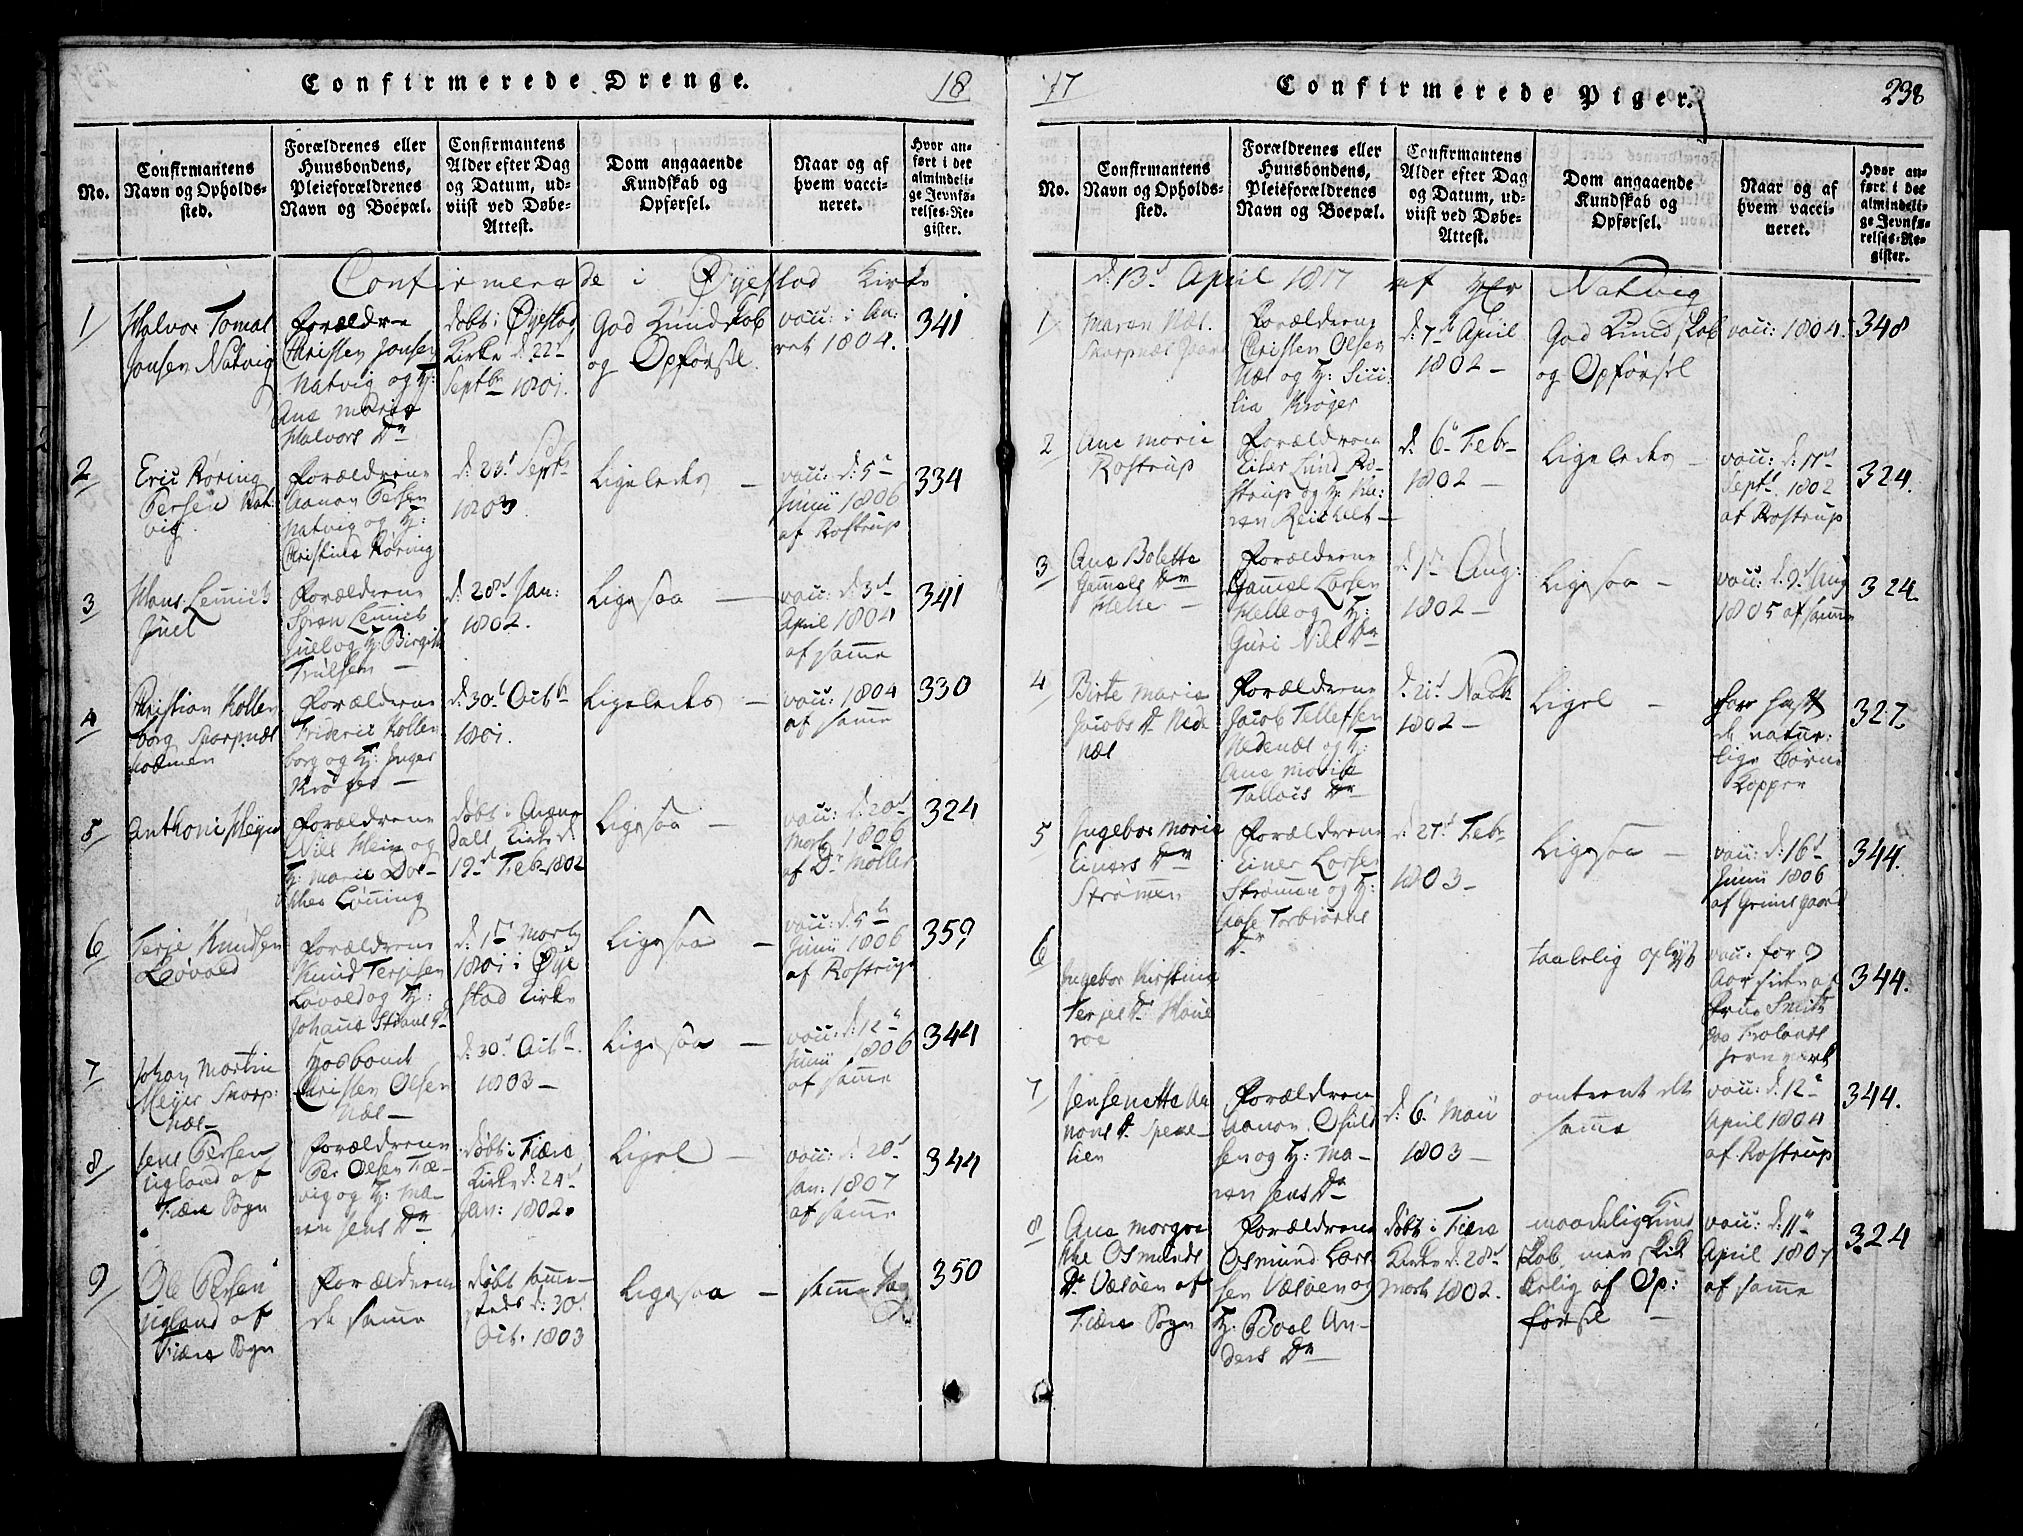 Confirmerede Drenge.
18
No.
Confirmantens
Navn og Opholds-
sted.
Forældrenes eller
Huusbondens,
Pleieforældrenes
Navn og Boepæl.
Confirmantens
Alder efter Dag
og Datum, ud-
viist ved Døbe-
Attest.
Dom angaaende
Kundskab og
Opførsel.
Naar og af
hvem vacci-
neret.
Hvor an-
ført i det
almindeli-
ge Jevnfø-
relses-Re-
gister.
Confirmerede i Øyestad Kirke
1
Halvor Tomas
Jonsen Natvig
Forældre
Christen Jonsen
Natvig og H:
Ane Maria
Halvors Dr
døbt i Øyestad
Kirke d: 22
Septbr 1801.
God Kundskab
og Opførsel
vacc: i Aa:
ret 1804.
341
2
Eric Røring
Persen Nat:
vig
Forældrene
Aanon Persen
Natvig og H:
Christine Røring
d: 23d Septbr
1803
Ligeledes –
vacc: d: 5
Junii 1806
af Rostrup
334
3
Hans Lemich
Juel
Forældrene
Søren Lemich
Juel og H: Birgith
Trulsen –
d: 28d Jan:
1802.
Ligesaa –
vacc: d: 3d
April 1804
af samme
341
4
Christian Kollen
borg Skarpnæs
Forældrene
Frideric Kollen
borg og H: Inger
Krøger –
d: 30t Octb
1801.
Ligeledes –
vacc: 1804
af samme
330
5
Anthoni Heyn
Forældrene
Niel Hein og
H: Marie Dor-
døbt i
Dals Kirke d:
19d Feb 1802
Ligesaa –
vacc: d: 20d
Mart 1806
af Dr Møller
324
6
Terje Knudsen
Løvold
Forældrene
Knud Terjesen
Løvold og H:
d: 1 Marty
1801 i Øye
stad Kirke
Ligesaa –
vacc: d: 5
Junii 1806
af Rostrup
359
7
Johan Martin
Meyer Skarp:
næs
Hosbond
Christen Olsen
Næs –
d: 30d Octb.
1803 –
Ligesaa –
vacc: d: 12
Junii 1806
af samme
344
8
Jens Persen
Ugland af
Fiære Sogn
Forældrene
Per Olsen Fiæ-
vig og H: Ma-
ren Jens Dr
døbt i Fiære
Kirke d: 24d
Jan: 1802.
Ligel –
vacc: d 20d
Jan: 1807
af samme
344
9
Ole Persen
Ugland af
Fiære Sogn
Forældrene
de samme
døbt samme-
steds d: 30d
Oct. 1803
Ligesaa –
samme Dag
350
17
Confirmerede Piger.
238
No.
Confirmantens
Navn og Opholds-
sted.
Forældrenes eller
Huusbondens,
Pleieforældrenes
Navn og Boepæl.
Confirmantens
Alder efter Dag
og Datum, ud-
viist ved Døbe-
Attest.
Dom angaaende
Kundskab og
Opførsel.
Naar og af
hvem vacci-
neret.
Hvor an-
ført i det
almindeli-
ge Jevnfø-
relses-Re-
gister.
d: 13d April 1817 af Hr Natvig
1
Maren Næs.
Skarpnæs
Forældrene
Christen Olsen
Næs og H: Sici
lia Krøger
d: 7d April
1802 –
God Kundskab
og Opførsel
vacc: 1804.
348
2
Ane Marie
Rostrup
Forældrene
Eiler Lund Ro-
strup og H: Ka:
ren Reichelt –
d: 6 Feb
1802 –
Ligeledes –
vacc: d: 17d
Sept. 1802
af Rostrup
324.
3
Ane Bolette
Gamels Dr
Helle –
Forældrene
Gamel Larsen
Helle og H:
Guri Niels Dr
d 1d Aug:
1802 –
Ligesaa –
vacc: d. 9d Aug
1805 af samme
324.
4
Birte Marie
Jacobs Dr Nede
næs
Forældrene
Jacob Tellefsen
Nedenæs og H:
Ane Maria
d: 21d
1802 –
Ligel –
har hafft
de natur:
lige Børne
Kopper
327.
5
Ingebor Marie
Einers Dr
Strømen
Forældrene
Einer Larsen
Strømen og H:
Aase Torbiørns
Dr
d: 27d Feb
1803 –
Ligesaa –
vacc: d: 16d
Junii 1806
af Grimsgaard
344.
6
Ingebor Kirstine
Terjes Dr
taalelig oplyst
vacc: for 9
Aar siden af
Smith
paa Frolands
Jernværk
344.
7
Jensenette Aa
nons Dr
Forældrene
Aanon
sen og H: Ma-
ren Jens Dr
d: 6 Maii
1803 –
omtrent det
samme
vacc: d: 12
April 1804
af Rostrup
344.
8
Ane Margre
the Osmunds
Dr Væsøen af
Fiære Sogn
Forældrene
Osmund Lars-
sen Væsøen og
H: Boel An-
ders Dr
døbt i Fiære
Kirke d: 28d
Marts 1802.
maadelig Kund
skab, men skik
kelig af Op:
førsel –
vacc: d: 11
April 1807
af samme
324